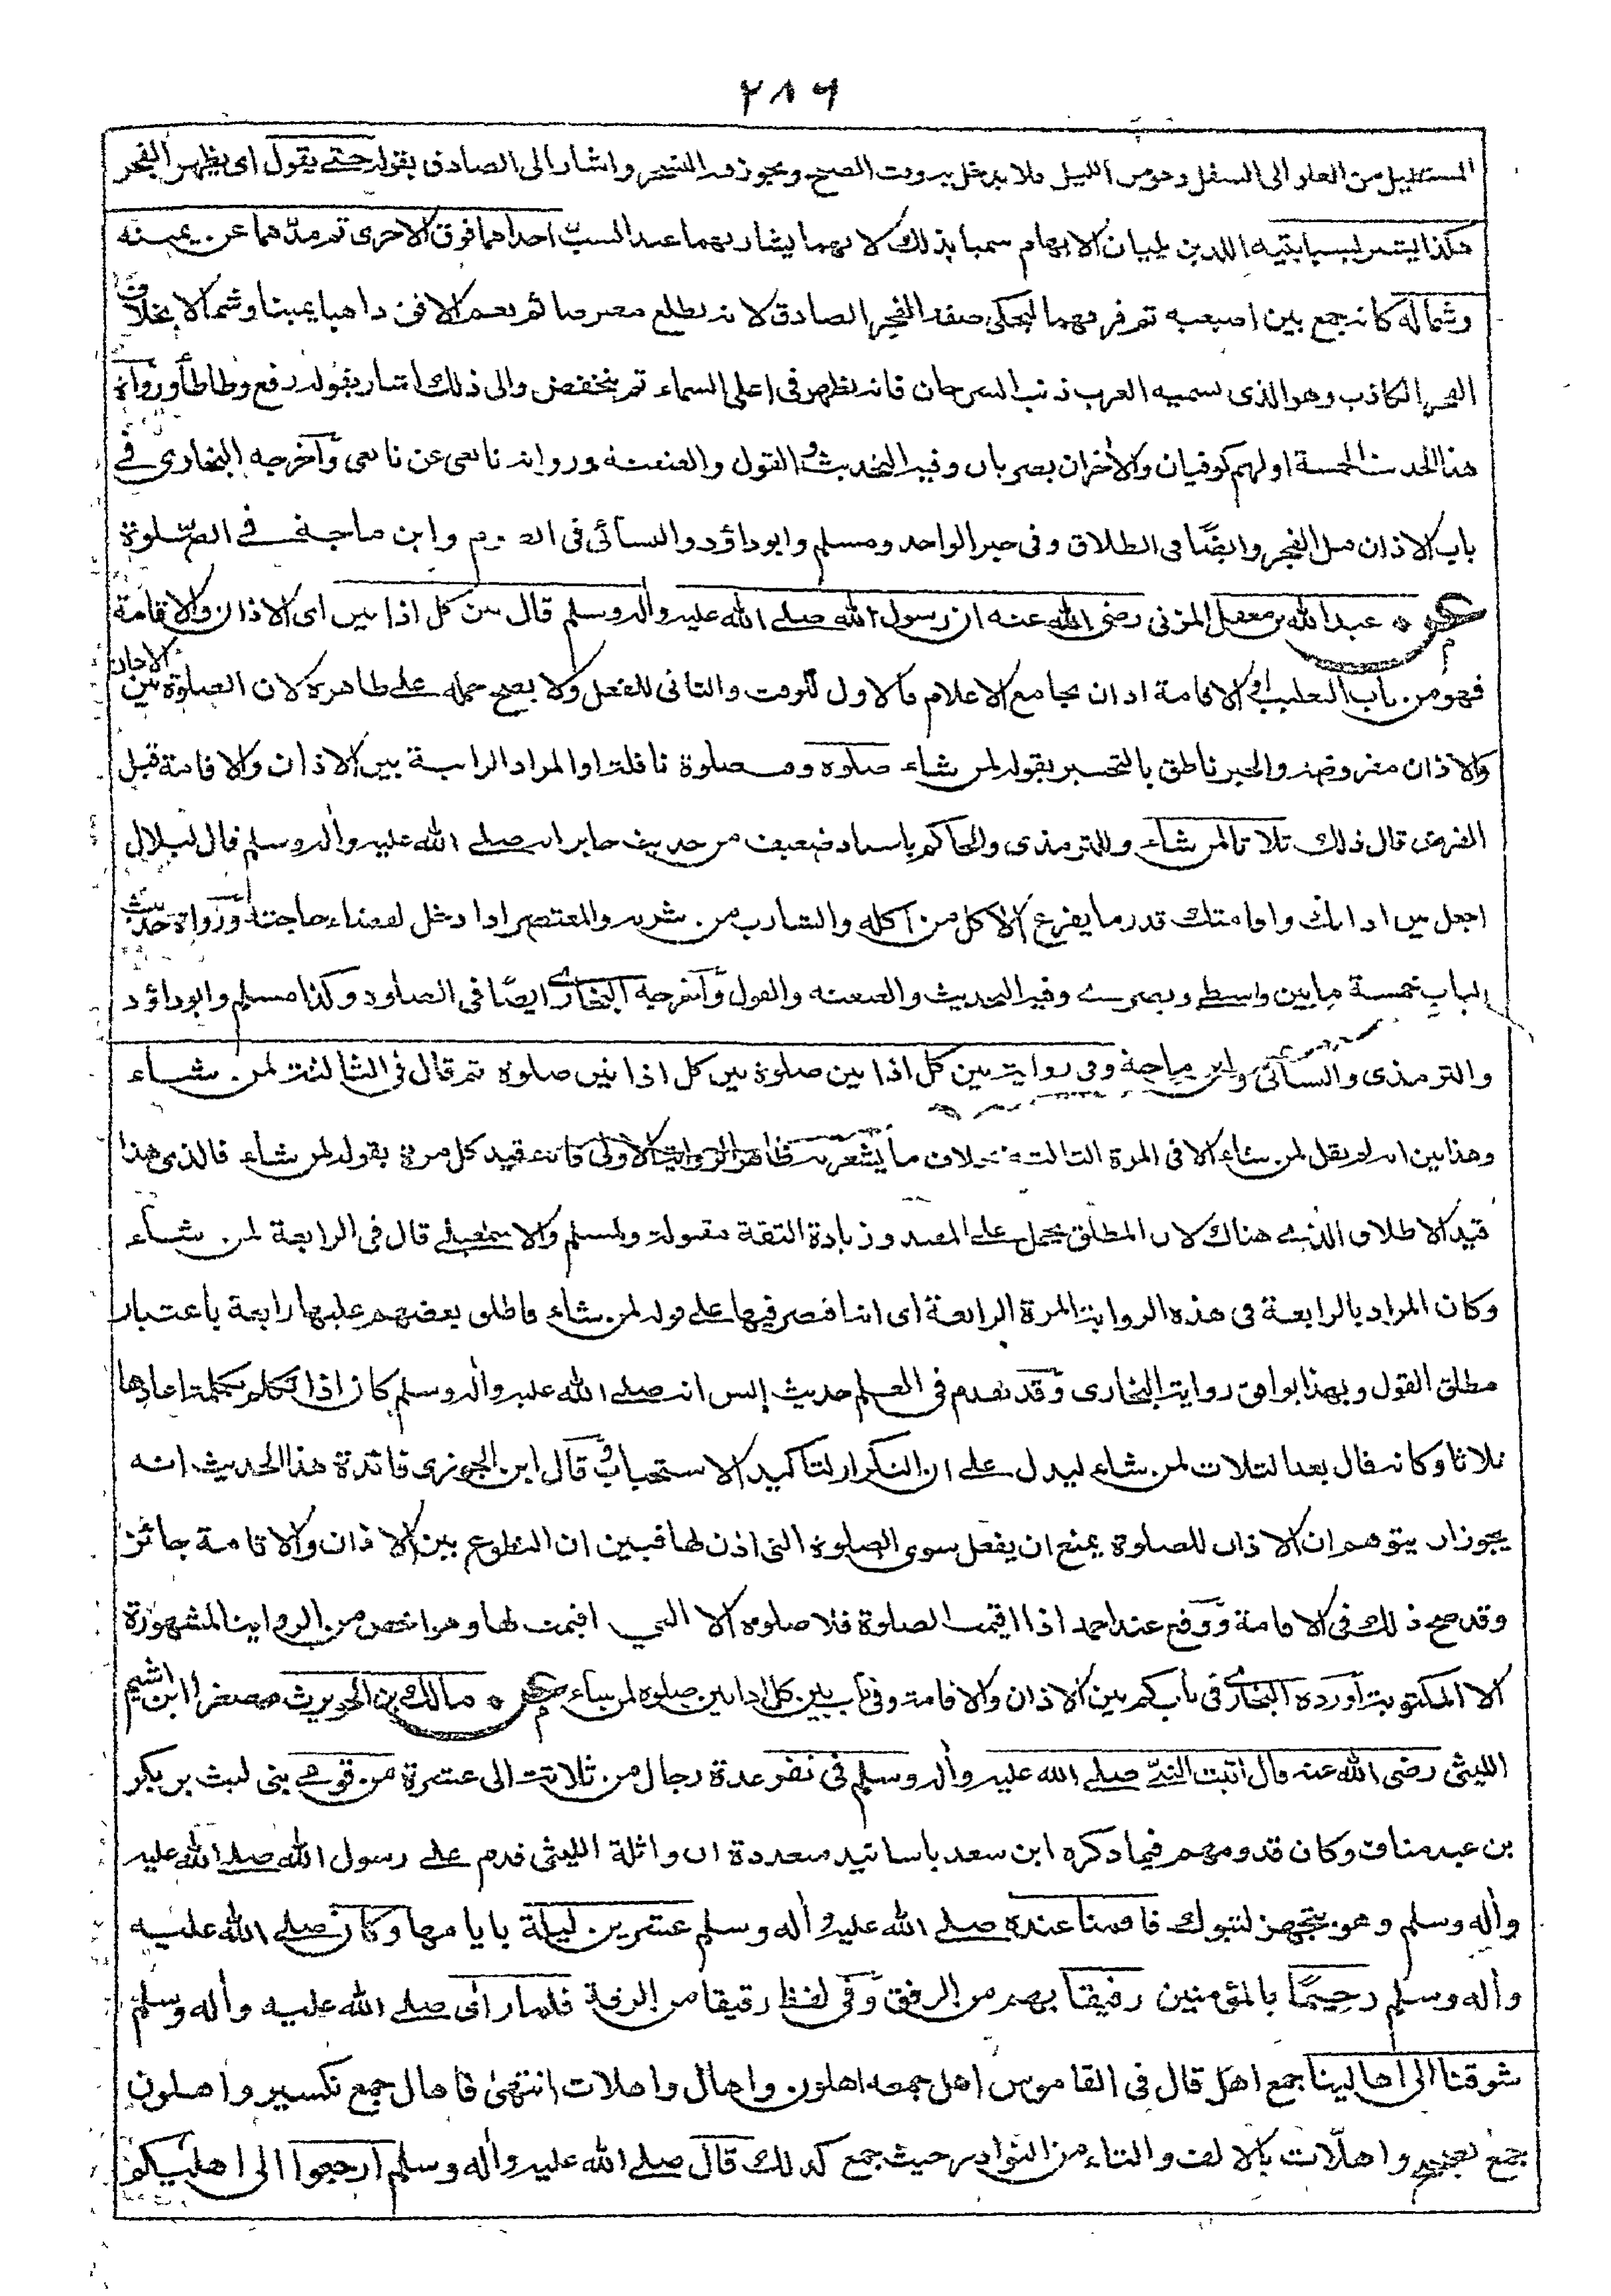 ٢٨٦
المستطيل من العلو الى السفل وهو من الليل فلا يدخل به وقت الصبح ويجوز فيه التسحر واشار الى الصادق بقوله حتى يقول اى يظهر الفجر
هكذا يشير بسبابتيه اللتين يليان الابهام سميا بذلك لانهما يشار بهما عند السب احداهما فوق الاخرى ثم مدهما عن يمينه
وشماله كانه جمع بين اصبعيه ثم فرقهما ليحكى صفة الفجر الصادق لانه يطلع معترضا ثم يعم الافق ذاهبا يمينا وشمالا بخلاف
الفجر الكاذب وهو الذى تسميه العرب ذنب السرحان فانه يظهر فى اعلى السماء ثم ينخفض والى ذلك اشار بقوله رفع وطاطأ ورواة
هذا الحديث الخمسة اولهم كوفيان والاخران بصريان وفيه التحديث والقول والعنعنة ورواية تابعى عن تابعى وأخرجه البخارى فى
باب الاذان قبل الفجر وايضًا فى الطلاق وفى خبر الواحد ومسلم وابوداؤد والنسائى فى الصوم وابن ماجة فى الصلوة
عبد الله بن مغفل المزنى رضى الله عنه ان رسول الله صلى الله عليه واله وسلم قال بين كل اذانين اى الاذان والاقامة
فهو من باب التغليب او الاقامة اذان بجامع الاعلام فالاول للوقت والثانى للفعل ولا يصح حمله على ظاهره لان الصلوة بين الاذان
والاذان مفروضة والخبر ناطق بالتخيير بقوله لمن شاء صلوة وصلوة نافلة او المراد الراتبة بين الاذان والاقامة قبل
الفرض قال ذلك ثلاثا لمن شاء وللترمذى والحاكم باسناد ضعيف من حديث جابر انه صلى الله عليه واله وسلم قال لبلال
اجعل بين اذانك واقامتك قدر ما يفرغ الاكل من اكله والشارب من شربه والمعتصر اذا دخل لقضاء حاجته ورواة حديث
الباب خمسة مابين واسطى وبصرى وفيه التحديث والعنعنه والقول وأخرجه البخارى ايضًا فى الصلوة وكذا مسلم وابوداؤد
والترمذى والنسائى وابن ماجة وفى رواية بين كل اذانين صلوة بين كل اذانين صلوة ثم قال فى الثالثة لمن شاء
وهذا بين انه لم يقل لمن شاء الا فى المرة الثالثة بخلاف ما يشعر به ظاهر الرواية الاولى فانه قيد كل مرة بقوله لمن شاء فالذى هذا
قيد الاطلاق الذى هناك لان المطلق يحمل على المقيد وزيادة الثقة مقبولة ولمسلم والاسمعيلى قال فى الرابعة لمن شاء
وكان المراد بالرابعة فى هذه الرواية المرة الرابعة اى انه اقتصر فيها على قوله لمن شاء فاطلق بعضهم عليها رابعة باعتبار
مطلق القول وبهذا يوافق رواية البخارى وقد تقدم فى العلم حديث انس انه صلى الله عليه واله وسلم كان اذا تكلم بكلمة اعادها
ثلاثا وكانه قال بعد الثلاث لمن شاء ليدل على ان التكرار لتاكيد الاستحباب وقال ابن الجوزى فائدة هذا الحديث انه
يجوز ان يتوهم ان الاذان للصلوة يمنع ان يفعل سوى الصلوة التى اذن لها فبين ان التطوع بين الاذان والاقامة جائز
وقد صح ذلك فى الاقامة ووقع عند احمد اذا اقيمت الصلوة فلا صلوة الا التى اقيمت لها وهو اخص من الرواية المشهورة
الا المكتوبة أورده البخارى فى باب كم بين الاذان والاقامة وفى باب بين كل اذانين صلوة لمن شاء مالك بن الحويرث مصغرا ابن اشيم
الليثى رضى الله عنه قال اتيت النبى صلى الله عليه واله وسلم فى نفر عدة رجال من ثلاثة الى عشرة من قومى بنى ليث بن بكر
بن عبد مناف وكان قدومهم فيما ذكره ابن سعد باسانيد متعددة ان واثلة الليثى قدم على رسول الله صلى الله عليه
واله وسلم وهو يتجهز لتبوك فاقمنا عنده صلى الله عليه واله وسلم عشرين ليلة بايامها وكان صلى الله عليه
واله وسلم رحيمًا بالمؤمنين رفيقا بهم من الرفق وفى لفظ رقيقا من الرقة فلما رأى صلى الله عليه واله وسلم
شوقنا الى اهالينا جمع اهل قال فى القاموس اهل جمعه اهلون واهال واهلات انتهى فاهال جمع تكسير واهلون
جمع تصحيح واهلات بالالف والتاء من النوادر حيث جمع كذلك قال صلى الله عليه واله وسلم ارجعوا الى اهليكم